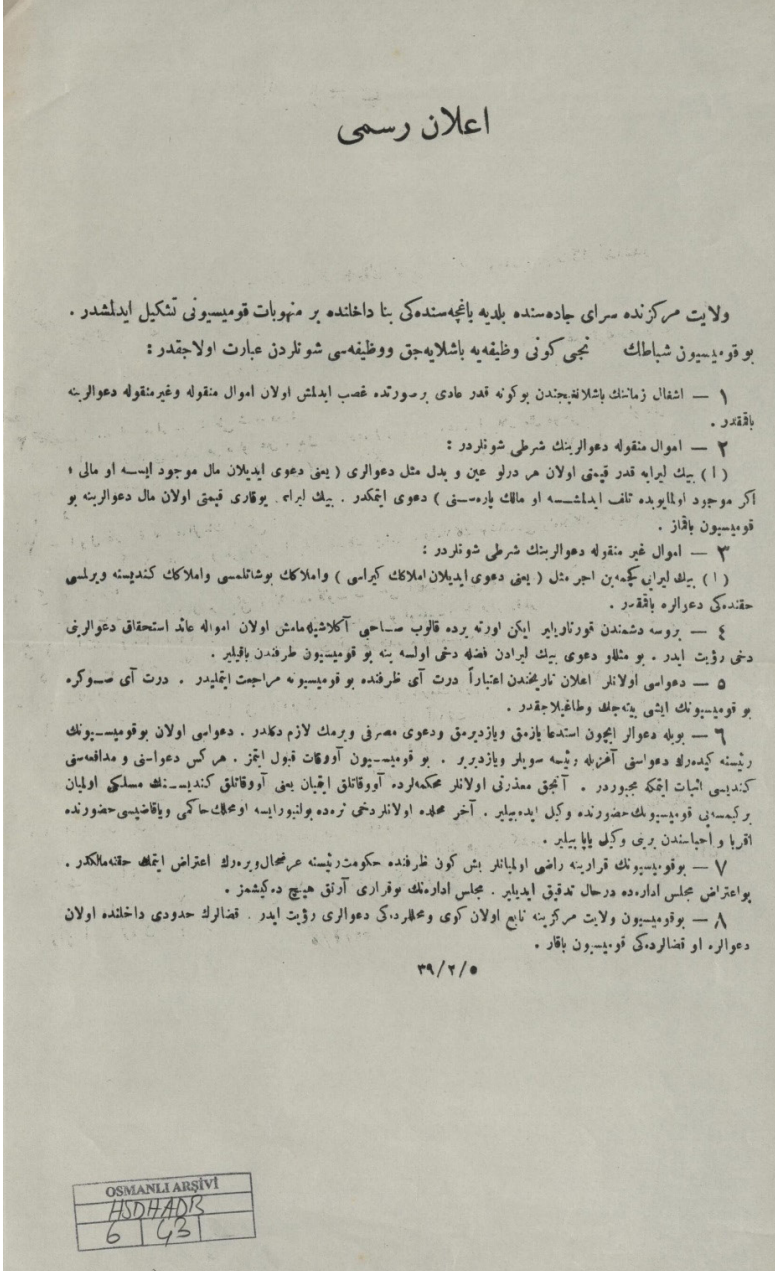 اعلان رسمی
ولایت مرکزنده سرای جاده‌سنده بلدیه باغچه‌سنده‌کی بنا داخلنده بر منهوبات قومیسیونی تشکیل ایدلمشدر .
بو قومیسیون شباطك نجی کونی وظیفه‌یه باشلایه‌جق ووظیفه‌سی شونلردن عبارت اولاجقدر :
۱ — اشغال زماننك باشلانغیجندن بوکونه قدر عادی بر صورتده غصب ایدلمش اولان اموال منقوله وغیر منقوله دعوالرینه
باقمقدر .
۲ — اموال منقوله دعوالرینك شرطی شونلردر :
( ا ) بیك لیرایه قدر قیمتی اولان هر درلو عین و بدل مثل دعوالری ( یعنی دعوی ایدیلان مال موجود ایسه او مالی ؛
اکر موجود اولمایوبده تلف ایدلمشسه او مالك پاره‌سنی ) دعوی ایتمکدر . بیك لیرادن یوقاری قیمتی اولان مال دعوالرینه بو
قومیسیون باقماز .
۳ — اموال غیر منقوله دعوالرینك شرطی شونلردر :
( ا ) بیك لیرایی کچمه‌ین اجر مثل ( یعنی دعوی ایدیلان املاکك کیراسی ) واملاکك بوشاتلمسی واملاکك کندیسنه ویرلمسی
حقنده‌کی دعوالره باقمقدر .
٤ — بروسه دشمندن قورتاریلیر ایکن اورته یرده قالوب صاحبی آکلاشیله‌مامش اولان امواله عائد استحقاق دعوالرینی
دخی رؤیت ایدر . بو مثللو دعوی بیك لیرادن فضله دخی اولسه ینه بو قومیسیون طرفندن باقیلیر .
٥ — دعواسی اولانلر اعلان تاریخندن اعتباراً درت آی ظرفنده بو قومیسیونه مراجعت ایتملیدر . درت آی صوکره
بو قومیسیونك ایشی بیته‌جك وطاغیلاجقدر .
٦ — بویله دعوالر ایچون استدعا یازمق ویازدیرمق ودعوی مصرفی ویرمك لازم دکلدر . دعواسی اولان بوقومیسیونك
رئیسنه کیده‌رك دعواسنی آغزیله رئیسه سویلر ویازدیریر . بو قومیسیون آووقات قبول ایتمز . هر کس دعواسنی و مدافعه‌سنی
کندیسی اثبات ایتمکه مجبوردر . آنجق معذرتی اولانلر محکمه‌لرده آووقاتلق ایتمیان یعنی آووقاتلق کندیسنك مسلکی اولمیان
بر کیمسه‌یی قومیسیونك حضورنده وکیل ایده‌بیلیر . آخر محلده اولانلردخی نره‌ده بولنیورایسه اومحلك حاکمی ویاقاضیسی حضورنده
اقربا و احباسندن برینی وکیل یاپا بیلیر .
۷ — بوقومیسیونك قرارینه راضی اولمیانلر بش کون ظرفنده حکومت رئیسنه عرضحال ویره‌رك اعتراض ایتمك حقنه مالکدر .
بواعتراض مجلس اداره‌ده درحال تدقیق ایدیلیر . مجلس اداره‌نك بوقراری آرتق هیچ ده‌کیشمز .
۸ — بوقومیسیون ولایت مرکزینه تابع اولان کوی ومحللرده‌کی دعوالری رؤیت ایدر . قضالرك حدودی داخلنده اولان
دعوالره او قضالرده‌کی قومیسیون باقار .
۳۹/۲/٥
OSMANLI ARŞİVİ
HSDHADB
6 43